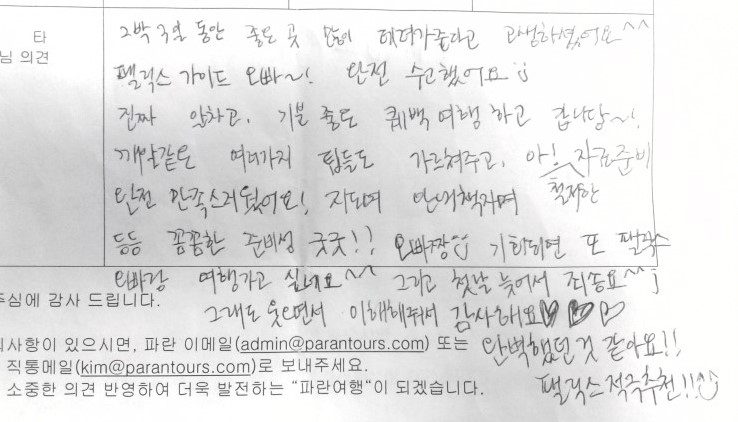 타
님 의견
2박 3일 동안 좋은 곳 많이 데려가줄라고 고생하셨어요^^
펠릭스 가이드 오빠~! 완전 수고했어요
진짜 알차고, 기분 좋은 퀘백 여행 하고 갑니당~!
깨알같은 여러가지 팁들도 가르쳐주고, 아! 자료준비
철저한
완전 만족스러웠어요! 지도며 안내책자며
등등 꼼꼼한 준비성 굿굿!! 오빠짱 기회되면 또 펠릭스
오빠랑 여행가고 싶네요^^ 그리고 첫날 늦어서 죄송요^^;
주심에 감사 드립니다.
그래도 웃으면서 이해해줘서 감사해요♡♡♡
의사항이 있으시면, 파란 이메일(admin@parantours.com) 또는
완벽했던것 같아요!!
직통메일(kim@parantours.com)로 보내주세요.
소중한 의견 반영하여 더욱 발전하는 "파란여행"이 되겠습니다.
펠릭스 적극추천!!